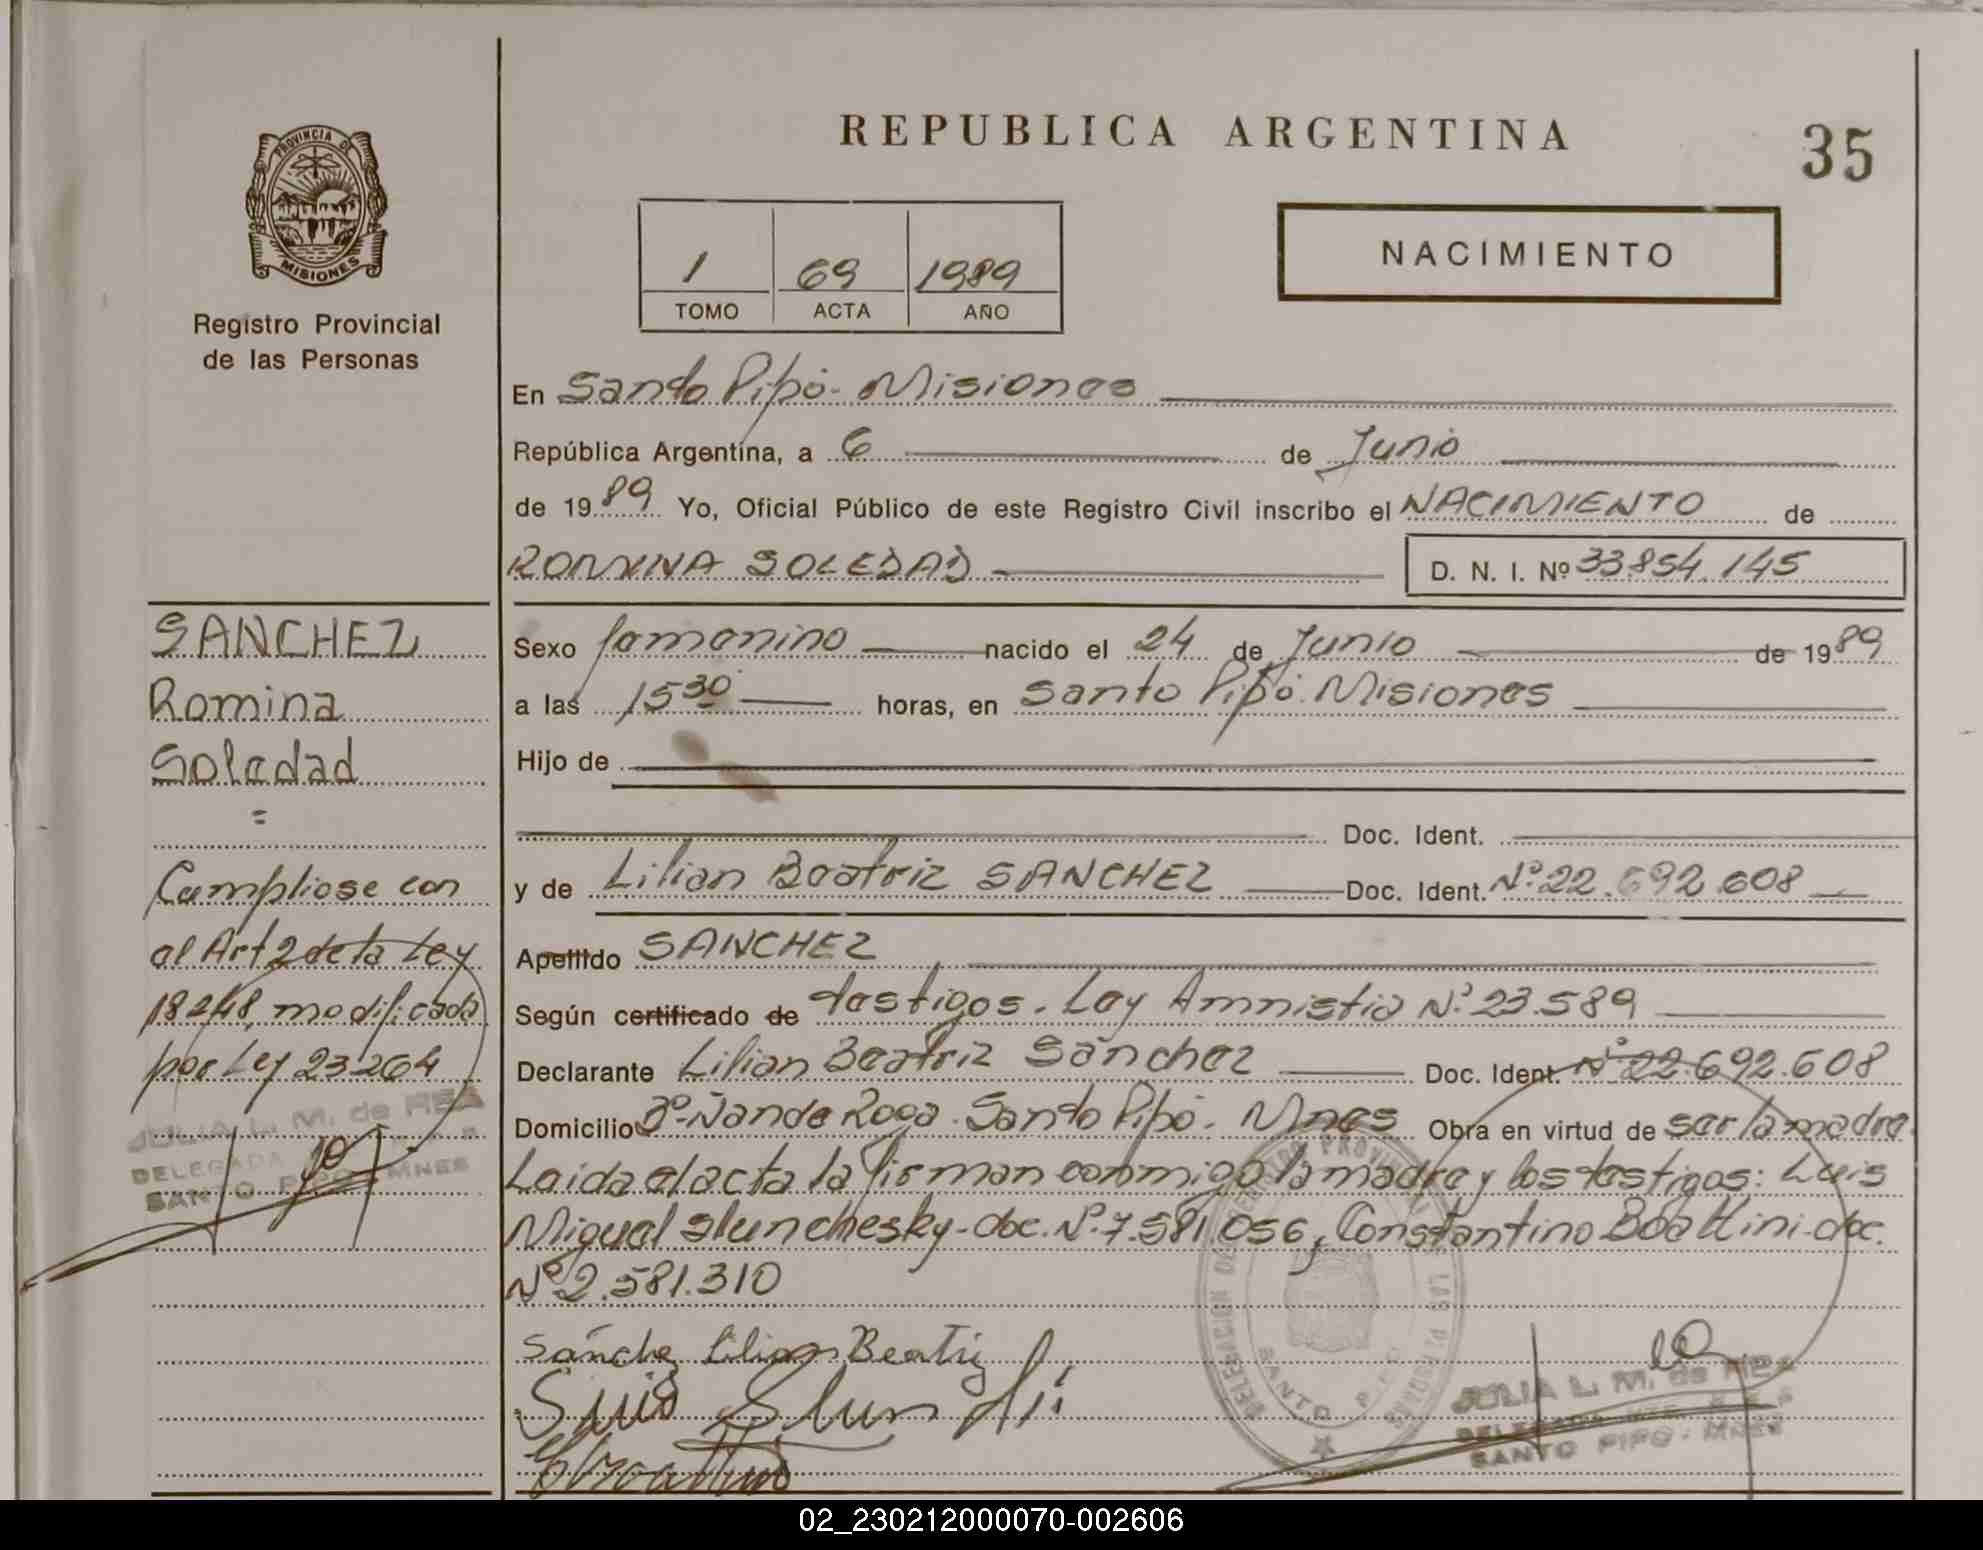 REPUBLICA ARGENTINA
35
PROVINCIA DE
MISIONES
Registro Provincial
de las Personas
1 69 1989
TOMO ACTA AÑO
NACIMIENTO
En Santo Pipó - Misiones
República Argentina, a 6 de Junio
de 1989 Yo, Oficial Público de este Registro Civil inscribo el NACIMIENTO de
ROMINA SOLEDAD D. N. I. Nº 33.854.145
SANCHEZ
Romina
Soledad
=
Cumpliose con
el Art 2 de la Ley
18248, modificada
por Ley 23264
JULIA L. M. de REA
DELEGADA
SANTO PIPO - MNES
Sexo femenino nacido el 24 de Junio de 1989
a las 15 30 horas, en Santo Pipó. Misiones
Hijo de
Doc. Ident.
y de Lilian Beatriz SANCHEZ Doc. Ident. Nº 22.692.608
Apellido SANCHEZ
Según certificado de testigos. Ley Amnistia Nº 23.589
Declarante Lilian Beatriz Sánchez Doc. Ident. Nº 22.692.608
Domicilio Bº Ñande Roga - Santo Pipó. Mnes Obra en virtud de ser la madre.
Leida el acta la firman conmigo la madre y los testigos: Luis
Miguel Slunchesky - doc. Nº 7.581.056, Constantino Boattini - doc.
Nº 2.581.310
Sánchez Lilian Beatriz
Luis
DELEGACION DEL REGISTRO PROVINCIAL DE LAS PERSONAS
SANTO PIPO
JULIA L. M. de REA
DELEGADA
SANTO PIPO - MNES
02_230212000070-002606